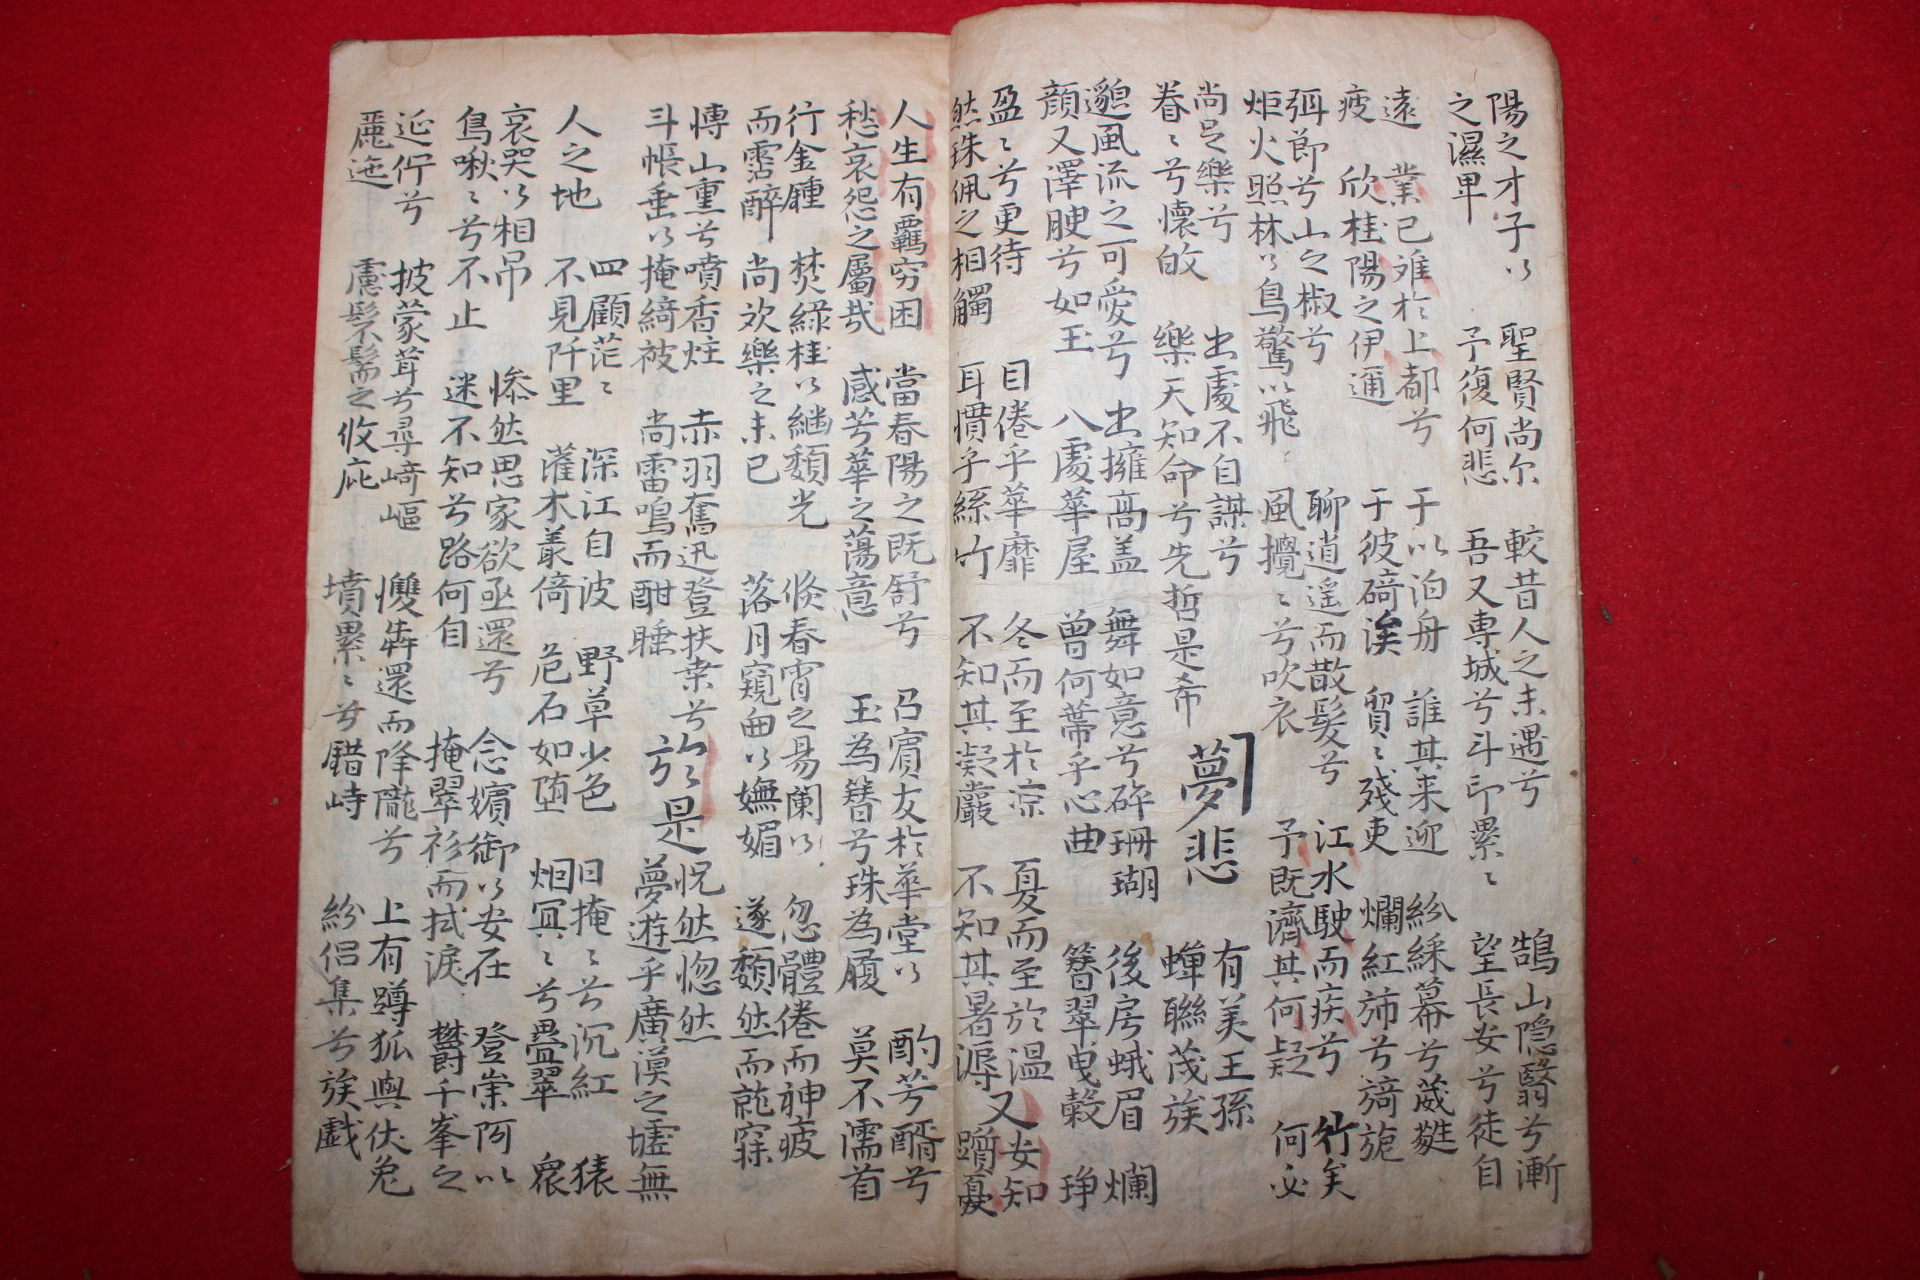 陽之才子以 聖賢尚尔 較昔人之未遇兮 鵠山隠翳兮漸
之濕卑 予復何悲 吾又專城兮斗印累〻 望長安兮徒自
遠 業已难於上都兮 于以泊舟 誰其来迎 紛綵幕兮葳蕤
疲 欣桂陽之伊邇 于彼碕涘 貿〻殘吏 爛紅斾兮旖旎
弭節兮山之椒兮 聊逍遥而散髮兮 江水駛而疾兮 竹矣
炬火照林以鳥驚以飛〻 風攪〻兮吹衣 予既濟其何疑 何必
尚足樂兮 出處不自謀兮 有美王孫
眷〻兮懷故 樂天知命兮先哲是希 蟬聯茂族
夢悲
邈風流之可愛兮 出擁高盖 舞如意兮碎珊瑚 後房蛾眉 爛
顔又澤腴兮如玉 八處華屋 曽何蔕乎心曲 簪翠曳縠 琤
盈〻兮更待 目倦乎華靡 冬而至於凉 夏而至於温 又安知
然珠佩之相觸 耳慣乎絲竹 不知其凝嚴 不知其暑溽 憂
人生有羈窮困 當春陽之既舒兮 召賓友於華堂以 酌芳醑兮
愁哀怨之屬哉 感芳華之蕩意 玉為簪兮珠為履 莫不濡首
行金鍾 焚緑桂以繼頽光 倐春宵之易闌以 忽體倦而神疲
而霑醉 尚欢樂之未已 落月窺曲以嫵媚 遂頽然而就寐
博山熏兮噴香炷 赤羽奮迅登扶桒兮 於是 怳然惚然
斗帳垂以掩綺被 尚雷鳴而酣睡 夢遊乎廣漠之墟無
四顧茫〻 深江自波 野草少色 日掩〻兮沉紅 猿
人之地 不見阡里 灌木叢倚 危石如堕 烟冥〻兮疊翠 衆
哀哭以相吊 惨然思家欲亟還兮 念嬪御以安在 登崇阿以
鳥啾〻兮不止 迷不知兮路何自 掩翠衫而拭淚 欝千峯之
延佇兮 披蒙茸兮尋崎嶇 犇還而降隴兮 上有蹲狐與伏兔
麗迤 慮之攸庇 墳累〻兮錯峙 紛侣集兮族戯